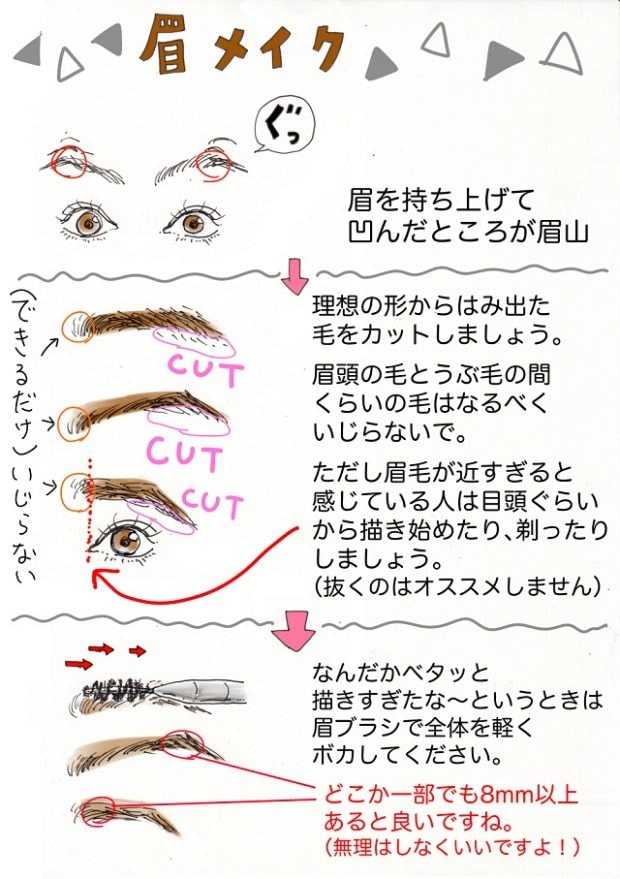 眉メイク
ぐっ
眉を持ち上げて
凹んだところが眉山
(できるだけ)いじらない
CUT
CUT
CUT
理想の形からはみ出た
毛をカットしましょう。
眉頭の毛とうぶ毛の間
くらいの毛はなるべく
いじらないで。
ただし眉毛が近すぎると
感じている人は目頭ぐらい
から描き始めたり、剃ったり
しましょう。
(抜くのはオススメしません)
なんだかベタッと
描きすぎたな〜というときは
眉ブラシで全体を軽く
ボカしてください。
どこか一部でも8mm以上
あると良いですね。
(無理はしなくいいですよ！)